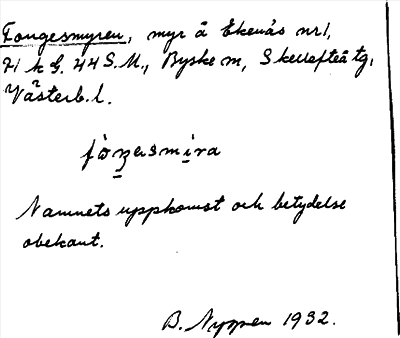 Fongesmyren, myr å Ekenäs nr1,
21 k S. 44 S.M., Byske m, Skellefteå tg,
Västerb. l.
Namnets uppkomst och betydelse
obekant.
B. Nyman 1932.